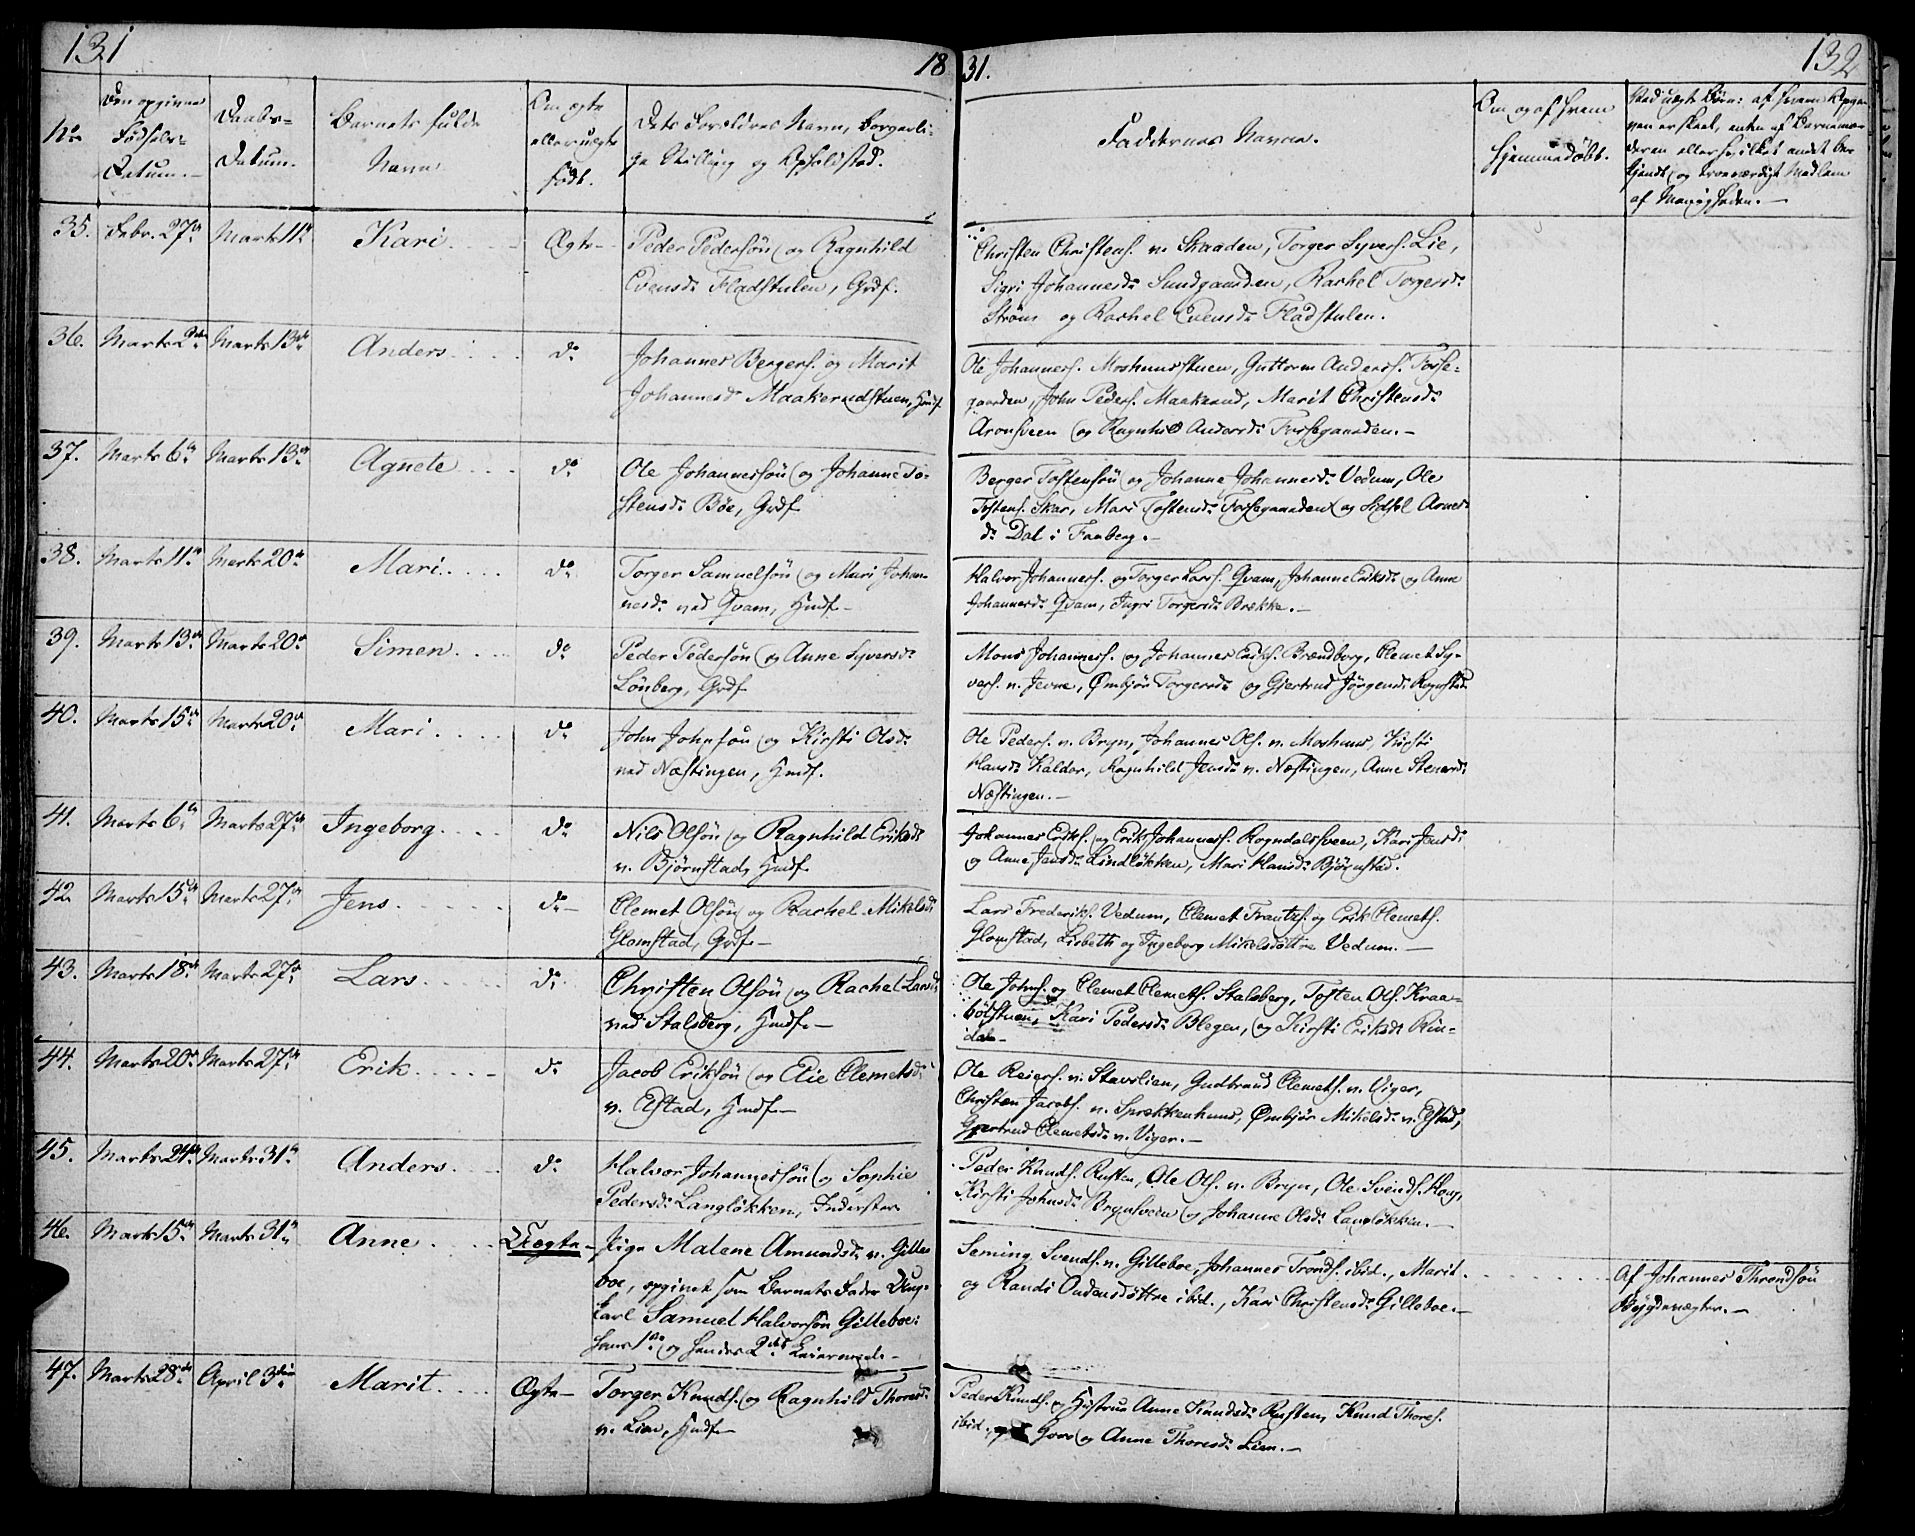 131
18
31.
132
No
Den opgivne
Fødsels-
Datum.-
Daabs-
Datum.
Barnets fulde
Navn
Om ægte
eller uægte
født.
Dets Forældres Navn, borgerli-
ge Stilling og Opholdsted.
Faddernes Navne.
Om og af hvem
hjemmedøbt.
Ved uægte Børn: af hvem Opgi-
ven er skeet, enten af Barnemo-
deren eller hvilket andet be-
kjendt og troeværdigt Medlem
af Menigheden.-
35. Febr. 27de Marts 11te Kari Ægte- Peder Pedersøn og Ragnhild
Evensd: Fladstulen, Grdf.
Christen Christens. v. Skaaden, Torger Syvers. Lie,
Sigri Johannesd: Sundgaarden, Rachel Torgersd:
Strøm og Rachel Evensd: Fladstulen.
36. Marts 2den Marts 13de Anders do Johannes Bergers. og Marit
Johannesd: Maakerudstuen, Hmdf.
Ole Johannes. Moshuusstuen, Guttorm Anders. Forse-
gaarden, John Peders. Maakerud, Marit Christensd:
Aronsveen og Ragnhild Andersd: Forsegaarden.-
37. Marts 6te Marts 13de Agnete do Ole Johannessøn og Johanne To-
stensd: Bøe, Grdf
Berger Tostensøn og Johanne Johannesd: Vedum, Ole
Tostens. Skar, Mari Tostensd: Forsegaarden og Sidsel Arnes-
d: Dal i Faaberg.-
38. Marts 11te Marts 20de Mari do Torger Samuelsøn og Mari Johan-
nesd: ved Qvam, Hmdf-
Halvor Johannes. og Torger Lars. Qvam, Johanne Eriksd: og Anne
Johannesd: Qvam, Ingri Torgersd: Brække.-
39. Marts 13de Marts 20de Simen do Peder Pedersøn og Anne Syversd:
Lønberg, Grdf
Mons Johannes. og Johannes Eriks. Brændborg, Clemet Sy-
vers. v. Jevne, Ømbjør Torgersd: og Gjertrud Jørgensd: Rognstad.
40. Marts 15de Marts 20de Mari do John Johnsøn og Kirsti Olsd:
ved Næstingen, Hmdf.
Ole Peders. v. Bryn, Johannes Ols. v. Moshuus, Kirsti
Hansd: Kalder, Ragnhild Jensd: v. Næstingen, Anne Stenersd:
Næstingen.-
41. Marts 6te Marts 27de Ingeborg do Nils Olsøn og Ragnhild Eriksd:
v. Bjørnstad, Hmdf
Johannes Eriks. og Erik Johannes. Rogndalssveen, Kari Jensd:
og Anne Jensd: Lindløkken, Mari Hansd: Bjørnstad.
42 Marts 15de Marts 27de Jens do- Clemet Olsøn og Rachel Mikelsd:
Glomstad, Grdf-
Lars Frederiks. Vedum, Clemet Frantzs. og Erik Clemets.
Glomstad, Lisbeth og Ingeborg Mikelsdøttre Vedum.-
43. Marts 18de Marts 27de Lars do Christen Olsøn og Rachel Larsd:
ved Stalsberg, Hmdf-
Ole Johns. og Clemet Clemets. Stalsberg, Tosten Ols. Kraa-
bølstuen, Kari Pedersd: Blegen, og Kirsti Eriksd: Rin-
dal-
44. Marts 20de Marts 27de Erik do Jacob Eriksøn og Elie Clemetsd:
v. Elstad, Hmdf-
Ole Reiers. v. Stavslien, Gudbrand Clemets. v. Viger,
Christen Jacobs. v. Sprækkenhuus, Ømbjør Mikelsd: v. Elstad,
Gjertrud Clemetsd: v. Viger.-
45. Marts 24de Marts 31te Anders do Halvor Johannessøn og Sophie
Pedersd: Langløkken, Inderster
Peder Knuds. Rusten, Ole Ols. v. Bryn, Ole Svends. Houg,
Kirsti Johnsd: Brynsveen og Johanne Olsd: Langløkken.-
46. Marts 15de Marts 31te Anne Uægte- Pige Malene Amundsd: v. Gille-
boe, opgivet som Barnets Fader Ung-
karl Samuel Halvorsøn Gilleboe:
hans 1ste og hendes 2det Leiermaal.-
Seming Svends. v. Gilleboe, Johannes Tronds. ibid., Marit
og Randi Audensdøttre ibid., Kari Christensd: Gilleboe.-
Af Johannes Throndsøn
Bøygdevægter.-
47. Marts 28de April 3die Marit Ægte- Torger Knuds. og Ragnhild Thoresd:
v. Lien, Hmdf-
Peder Knuds. og Hustrue Anne Knudsd: Rusten, Knud Thores.
ibid., og Goro og Anne Thoresd: Lien.-